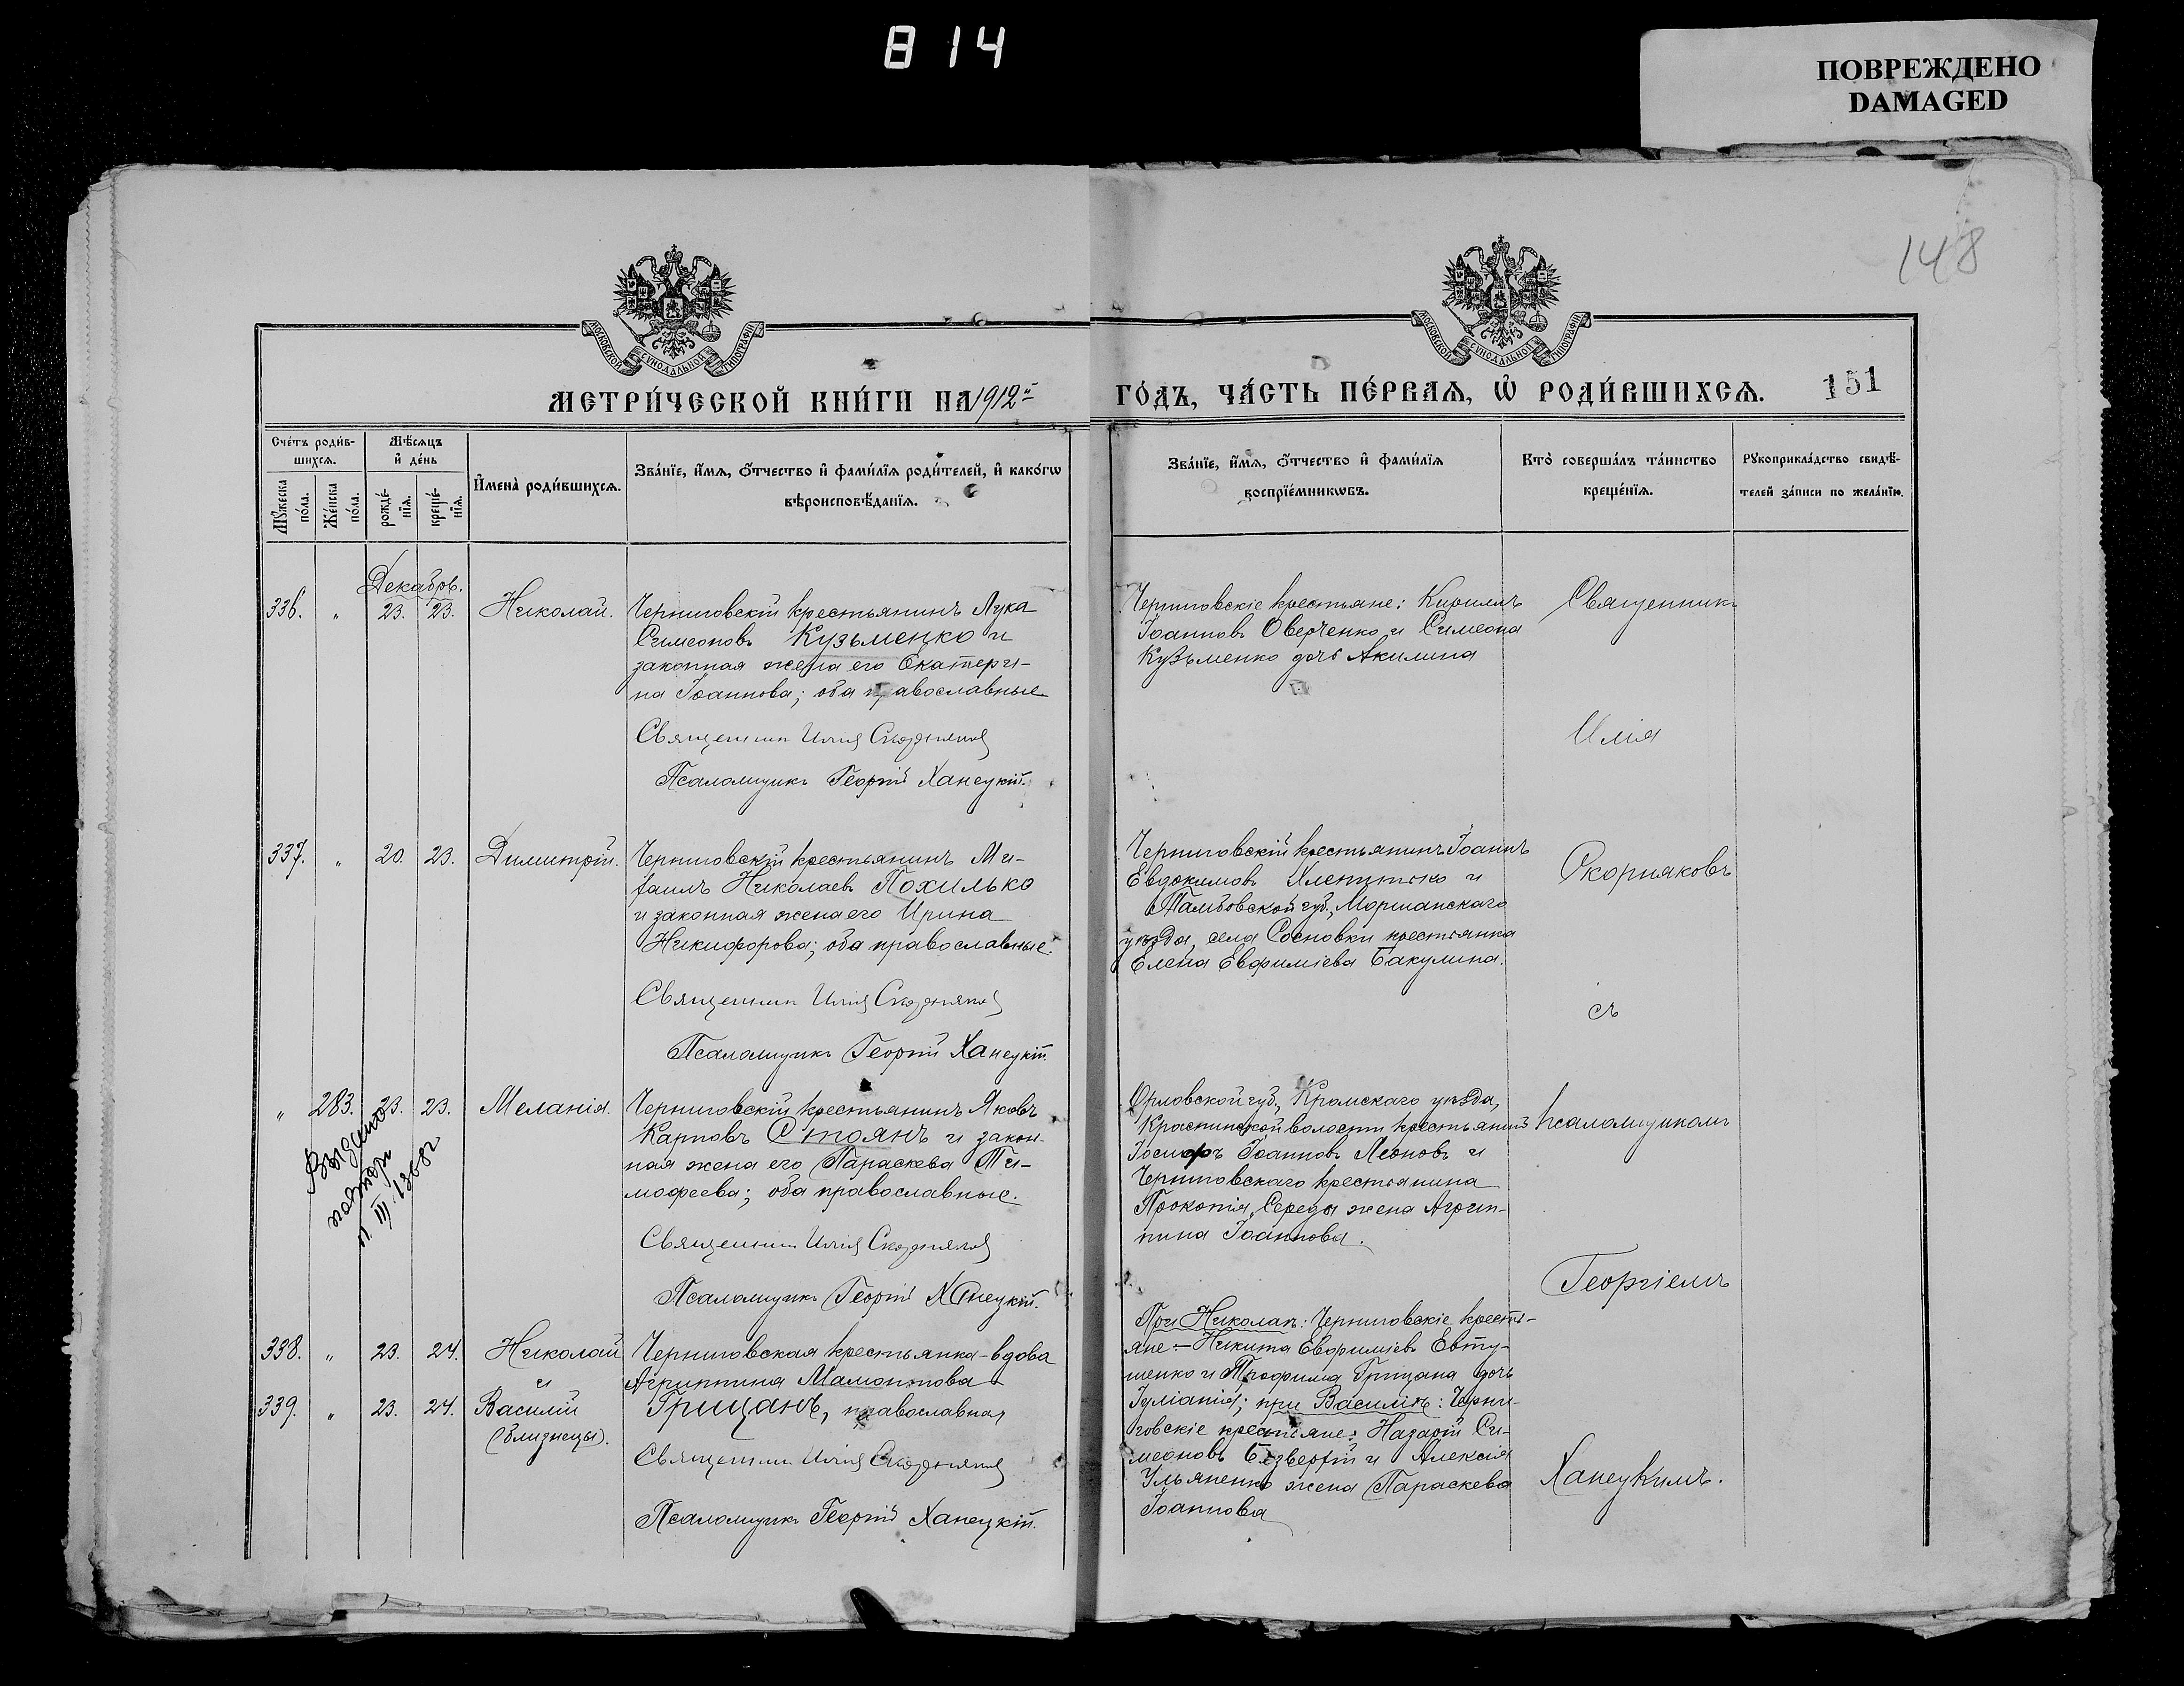 814
ПОВРЕЖДЕНО
DAMAGED
148
МОСКОВСКОЙ СУНОДАЛЬНОЙ ТИПОГРАФІИ
МОСКОВСКОЙ СУНОДАЛЬНОЙ ТИПОГРАФІИ
МЕТРИ́ЧЕСКОЙ КНИ́ГИ НА 1912й ГО́ДЪ, ЧА́СТЬ ПЕ́РВАѦ, Ѡ҆ РОДИ́ВШИХСѦ. 151
Сче́тъ роди́в-
шихсѧ.
Мѣ́сѧцъ
и҆ де́нь
Мꙋ́жеска по́ла.
Же́нска по́ла.
рожде́-
нїѧ.
креще́-
нїѧ.
И҆мена̀ роди́вшихсѧ.
Зва́нїе, и҆́мѧ, ѻ҆́тчество и҆ фами́лїѧ роди́телей, и҆ како́гѡ
вѣроисповѣ́данїѧ.
Зва́нїе, и҆́мѧ, ѻ҆́тчество и҆ фами́лїѧ
воспрїе́мникѡвъ.
Кто̀ соверша́лъ та́инство
креще́нїѧ.
Рꙋкоприкла́дство свидѣ́-
телей за́писи по жела́нїю.
Декабрь.
336. " 23. 23. Николай.
Черниговскій крестьянинъ Лука
Симеоновъ Кузьменко и
законная жена его Екатери-
на Іоаннова; оба православные
Священникъ Илія Скорняковъ
Псаломщикъ Георгій Ханецкій.
Черниговскіе крестьяне: Кириллъ
Іоанновъ Оверченко и Симеона
Кузьменко дочь Акилина
Священникъ
Илія
337. " 20. 23. Димитрій.
Черниговскій крестьянинъ Ми-
хаилъ Николаевъ Похилько
и законная жена его Ирина
Никифорова; оба православные.
Священникъ Илія Скорняковъ
Псаломщикъ Георгій Ханецкій.
Черниговскій крестьянинъ Іоаннъ
Евдокимовъ и
Тамбовской губ., Моршанскаго
уѣзда, села Сосновки крестьянка
Елена Евфиміева Бакулина.
Скорняковъ
съ
" 283. 23. 23. Меланія.
Выдано
III. 1368г
Черниговскій крестьянинъ Яковъ
Карповъ Стоянъ и закон-
ная жена его Параскева Ти-
мофеева; оба православные.
Священникъ Илія Скорняковъ
Псаломщикъ Георгій Ханецкій.
Орловской губ., Кромскаго уѣзда,
волости крестьянинъ
Іосифъ Іоанновъ Леоновъ и
Черниговскаго крестьянина
Прокопія Середы жена Агрип-
пина Іоаннова.
псаломщикомъ
Георгіемъ
338. " 23. 24. Николай
и
339. " 23. 24. Василій
(близнецы).
Черниговская крестьянка-вдова
Агриппина Мамонтова
Грицанъ, православная
Священникъ Илія Скорняковъ
Псаломщикъ Георгій Ханецкій.
При Николаѣ: Черниговскіе кресть-
яне – Никита Евфиміевъ Евту-
шенко и Трофима Грицана дочь
Іуліанія; при Василіѣ: Черни-
говскіе крестьяне: Назарій Си-
меоновъ Безверхій и Алексія
Ульяненко жена Параскева
Іоаннова
Ханецкимъ.